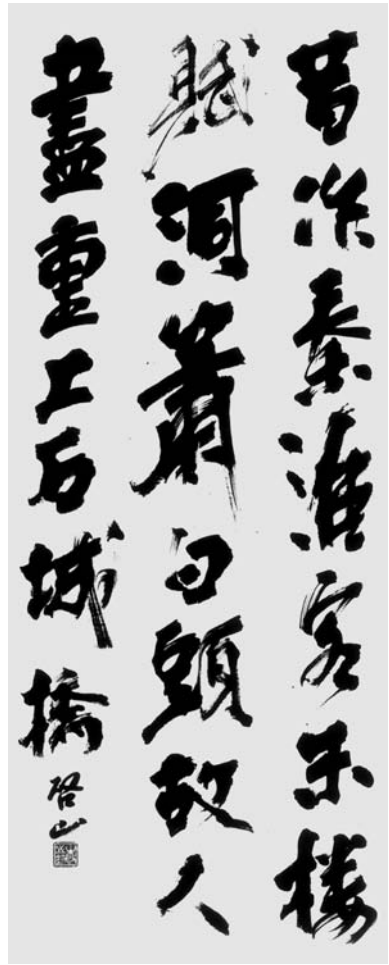 昔作秦淮客朱楼
賦洞簫白頭故人
盡重上石城橋
啓山